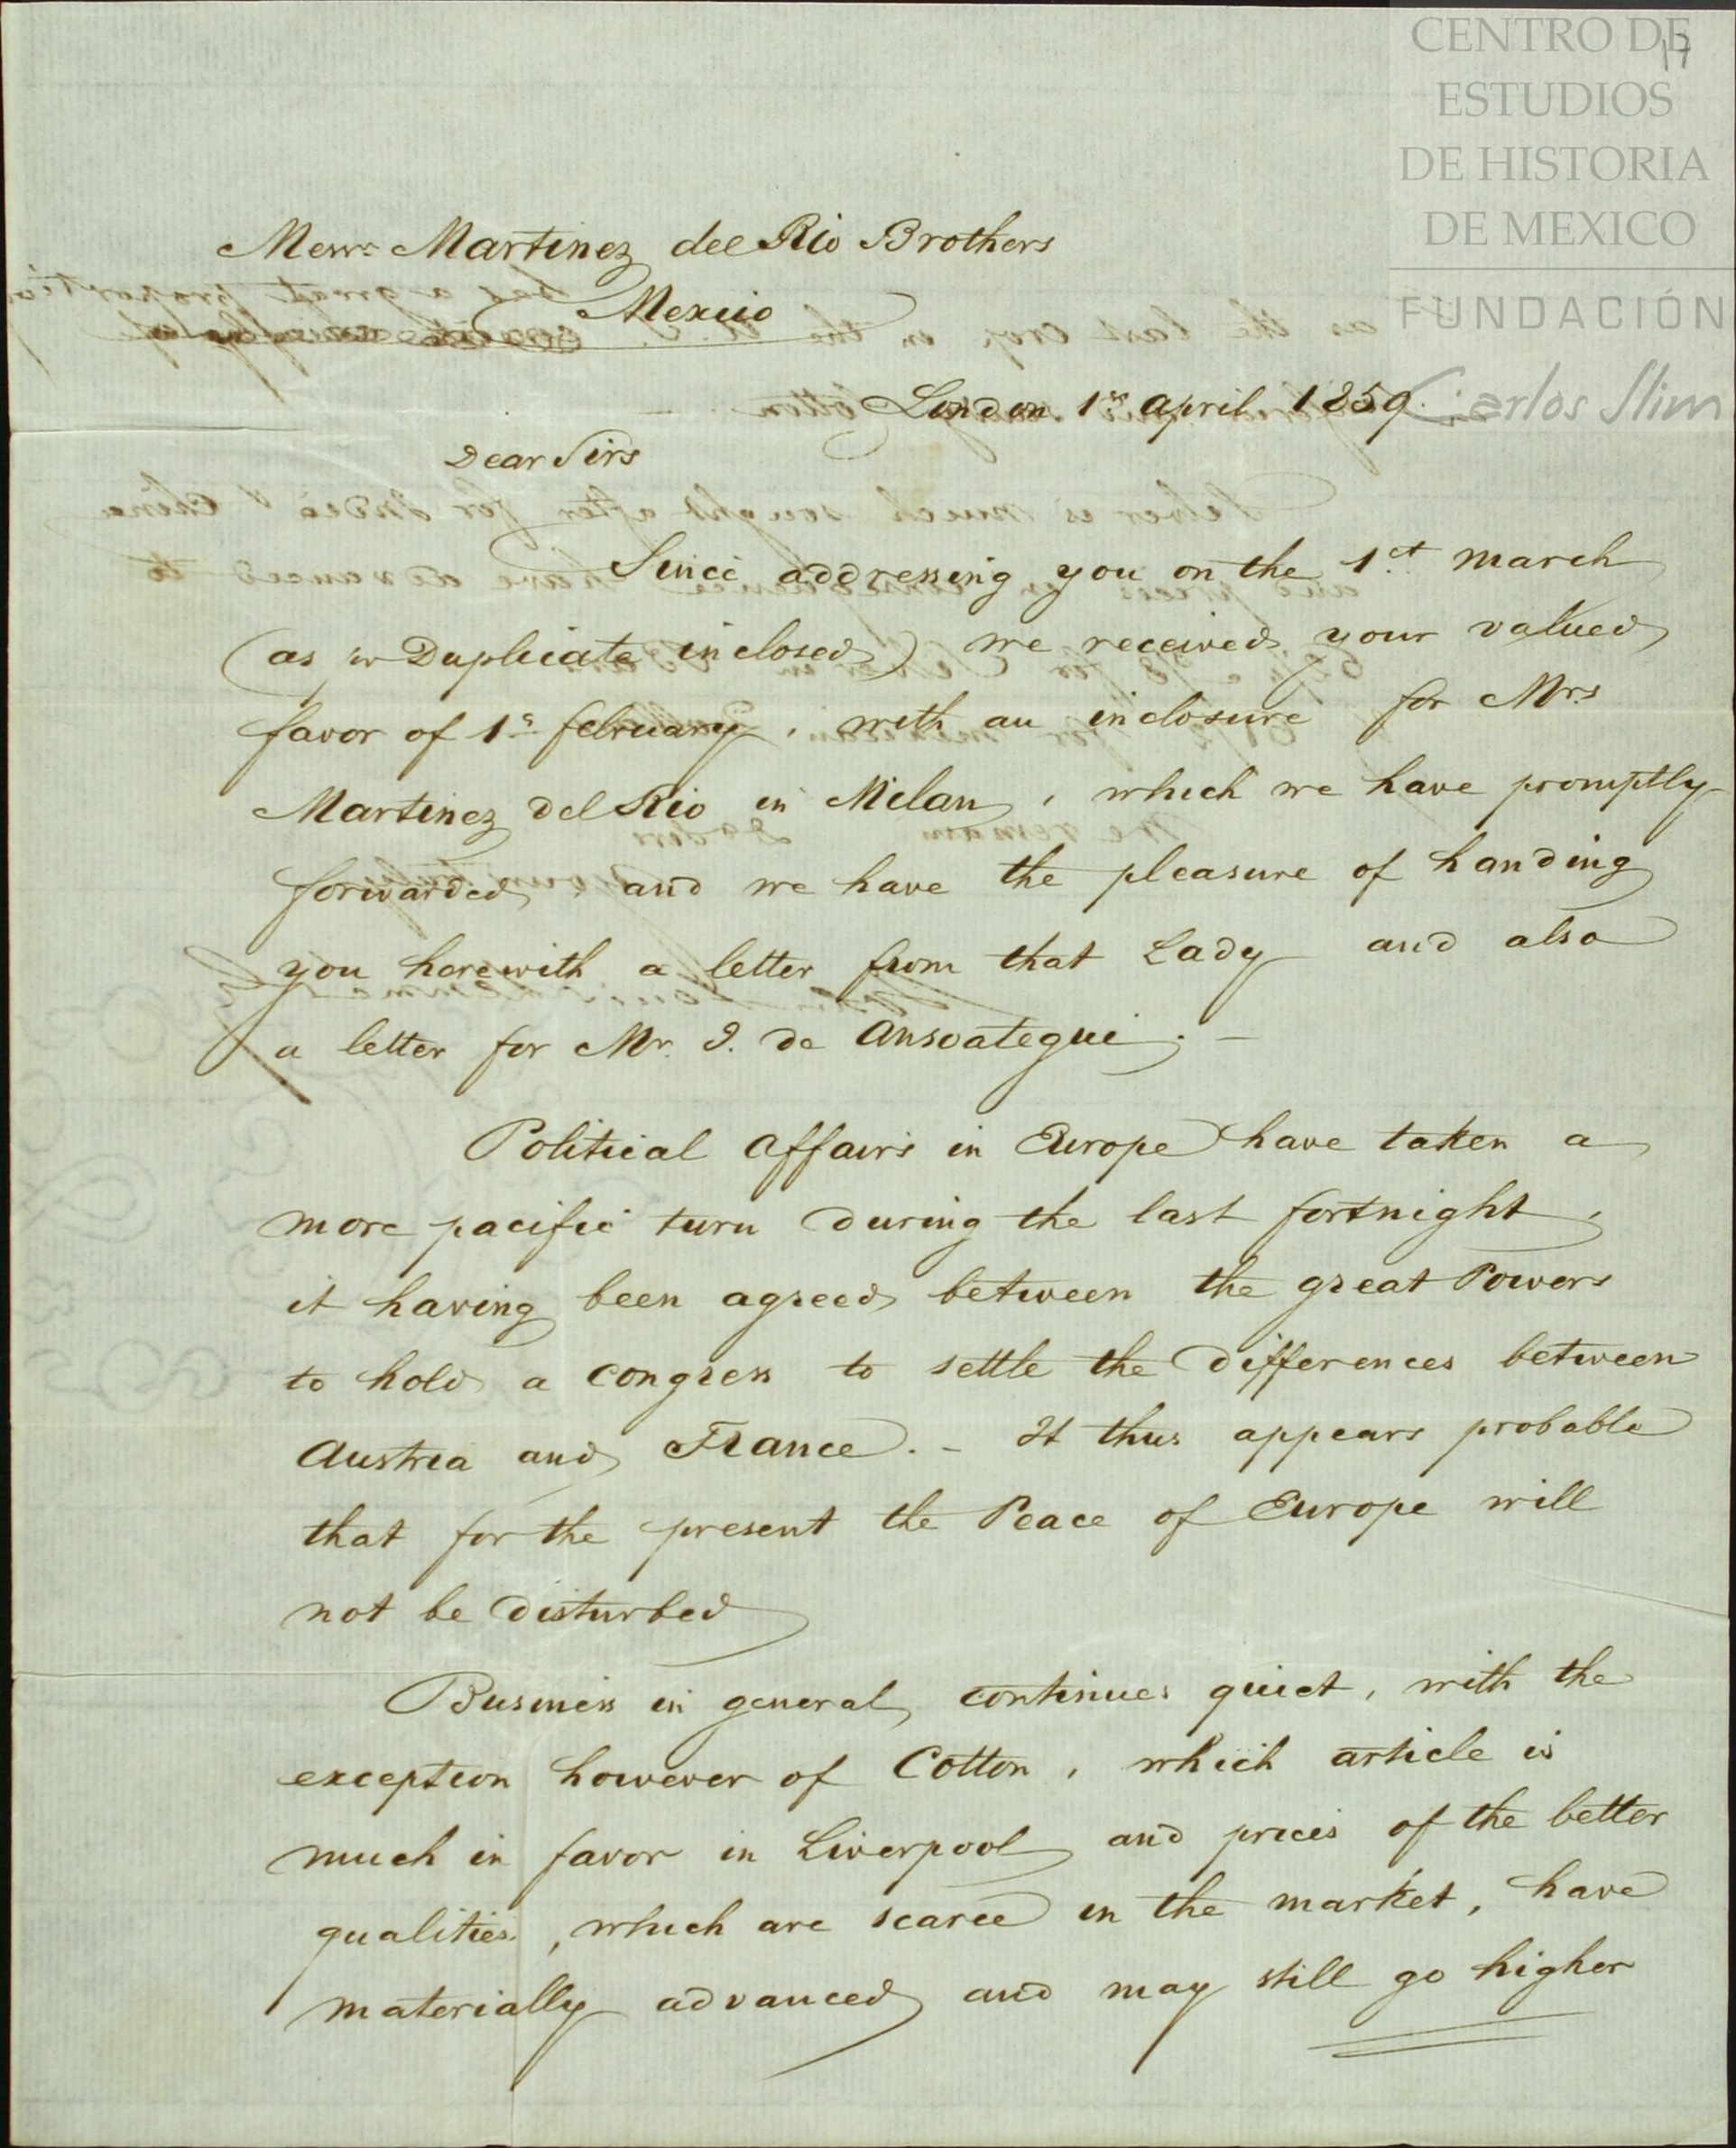 CENTRO DE
ESTUDIOS
DE HISTORIA
DE MEXICO
FUNDACIÓN
Carlos Slim
17
Messrs Martinez del Rio Brothers
Mexico
London 1st April 1859.
Dear Sirs
Since addressing you on the 1st March
(as pr Duplicate inclosed) we received your valued
favor of 1st february, with an inclosure for Mrs
Martinez del Rio in Milan, which we have promptly
forwarded, and we have the pleasure of handing
you herewith a letter from that Lady and also
a letter for Mr. J. de Ansoategui. —
Political Affairs in Europe have taken a
more pacific turn during the last fortnight,
it having been agreed between the great Powers
to hold a Congress to settle the differences between
Austria and France. — It thus appears probable
that for the present the Peace of Europe will
not be disturbed
Business in general continues quiet, with the
exception however of Cotton, which article is
much in favor in Liverpool and prices of the better
qualities, which are scarce in the market, have
materially advanced and may still go higher